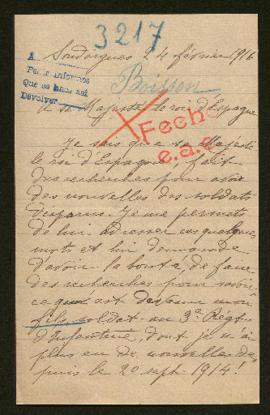 3217
Soudorgues 24 février 1916
A
Para informes
Que se hace así
Devolver
Boisson
A sa Majesté le roi d'Espagne
Fecho
e.a.d.
Je sais que sa Majesté
le roi d'Espagne, fait
des recherches pour avoir
des nouvelles des soldats
disparus. Je me permets
de lui adresser ces quelques
mots et lui demande
d'avoir la bonté, de faire
des recherches pour savoir
ce qu'est devenu mon
fils soldat au 3e Régt
d'Infanterie, dont je n'ai
plus eu de nouvelles de
puis le 20 sept. 1914!